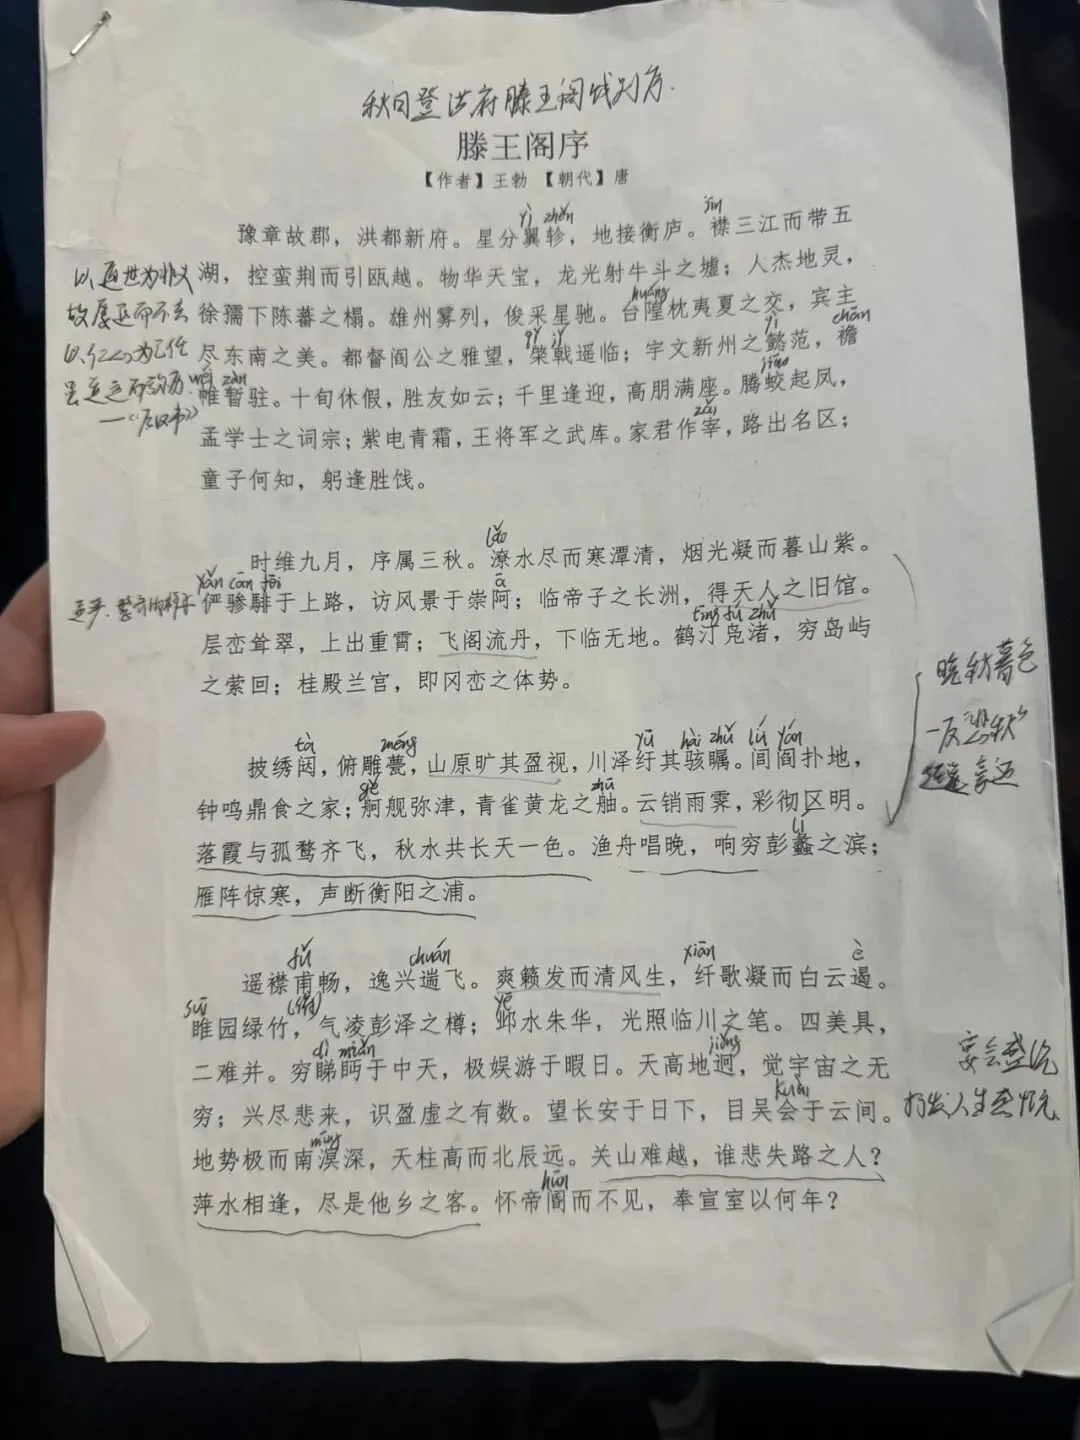 秋日登洪府滕王阁饯别序.
滕王阁序
【作者】王勃 【朝代】唐
yì zhěn jīn
豫章故郡，洪都新府。星分翼轸，地接衡庐。襟三江而带五
以遁世为非义
湖，控蛮荆而引瓯越。物华天宝，龙光射牛斗之墟；人杰地灵，
huáng
故屡退而不去
徐孺下陈蕃之榻。雄州雾列，俊采星驰。台隍枕夷夏之交，宾主
qǐ jǐ yì chān
以仁心为己任
尽东南之美。都督阎公之雅望，棨戟遥临；宇文新州之懿范，襜
wéi zàn jiāo
帷暂驻。十旬休假，胜友如云；千里逢迎，高朋满座。腾蛟起凤，
—《后汉书》
zǎi
孟学士之词宗；紫电青霜，王将军之武库。家君作宰，路出名区；
童子何知，躬逢胜饯。
lǎo
时维九月，序属三秋。潦水尽而寒潭清，烟光凝而暮山紫。
yǎn cān fēi ā
俨骖騑于上路，访风景于崇阿；临帝子之长洲，得天人之旧馆。
tīng fú zhǔ
层峦耸翠，上出重霄；飞阁流丹，下临无地。鹤汀凫渚，穷岛屿
之萦回；桂殿兰宫，即冈峦之体势。
晚秋暮色
一反“悲秋”
tà méng yū hài zhǔ lǘ yán
披绣闼，俯雕甍，山原旷其盈视，川泽纡其骇瞩。闾阎扑地，
gě zhú
钟鸣鼎食之家；舸舰弥津，青雀黄龙之舳。云销雨霁，彩彻区明。
lǐ
落霞与孤鹜齐飞，秋水共长天一色。渔舟唱晚，响穷彭蠡之滨；
雁阵惊寒，声断衡阳之浦。
fǔ chuán xiān è
遥襟甫畅，逸兴遄飞。爽籁发而清风生，纤歌凝而白云遏。
suī yè
睢园绿竹，气凌彭泽之樽；邺水朱华，光照临川之笔。四美具，
dì miǎn jiǒng
二难并。穷睇眄于中天，极娱游于暇日。天高地迥，觉宇宙之无
宴会盛况
kuài
穷；兴尽悲来，识盈虚之有数。望长安于日下，目吴会于云间。
抒发人生感慨
míng
地势极而南溟深，天柱高而北辰远。关山难越，谁悲失路之人？
hūn
萍水相逢，尽是他乡之客。怀帝阍而不见，奉宣室以何年？